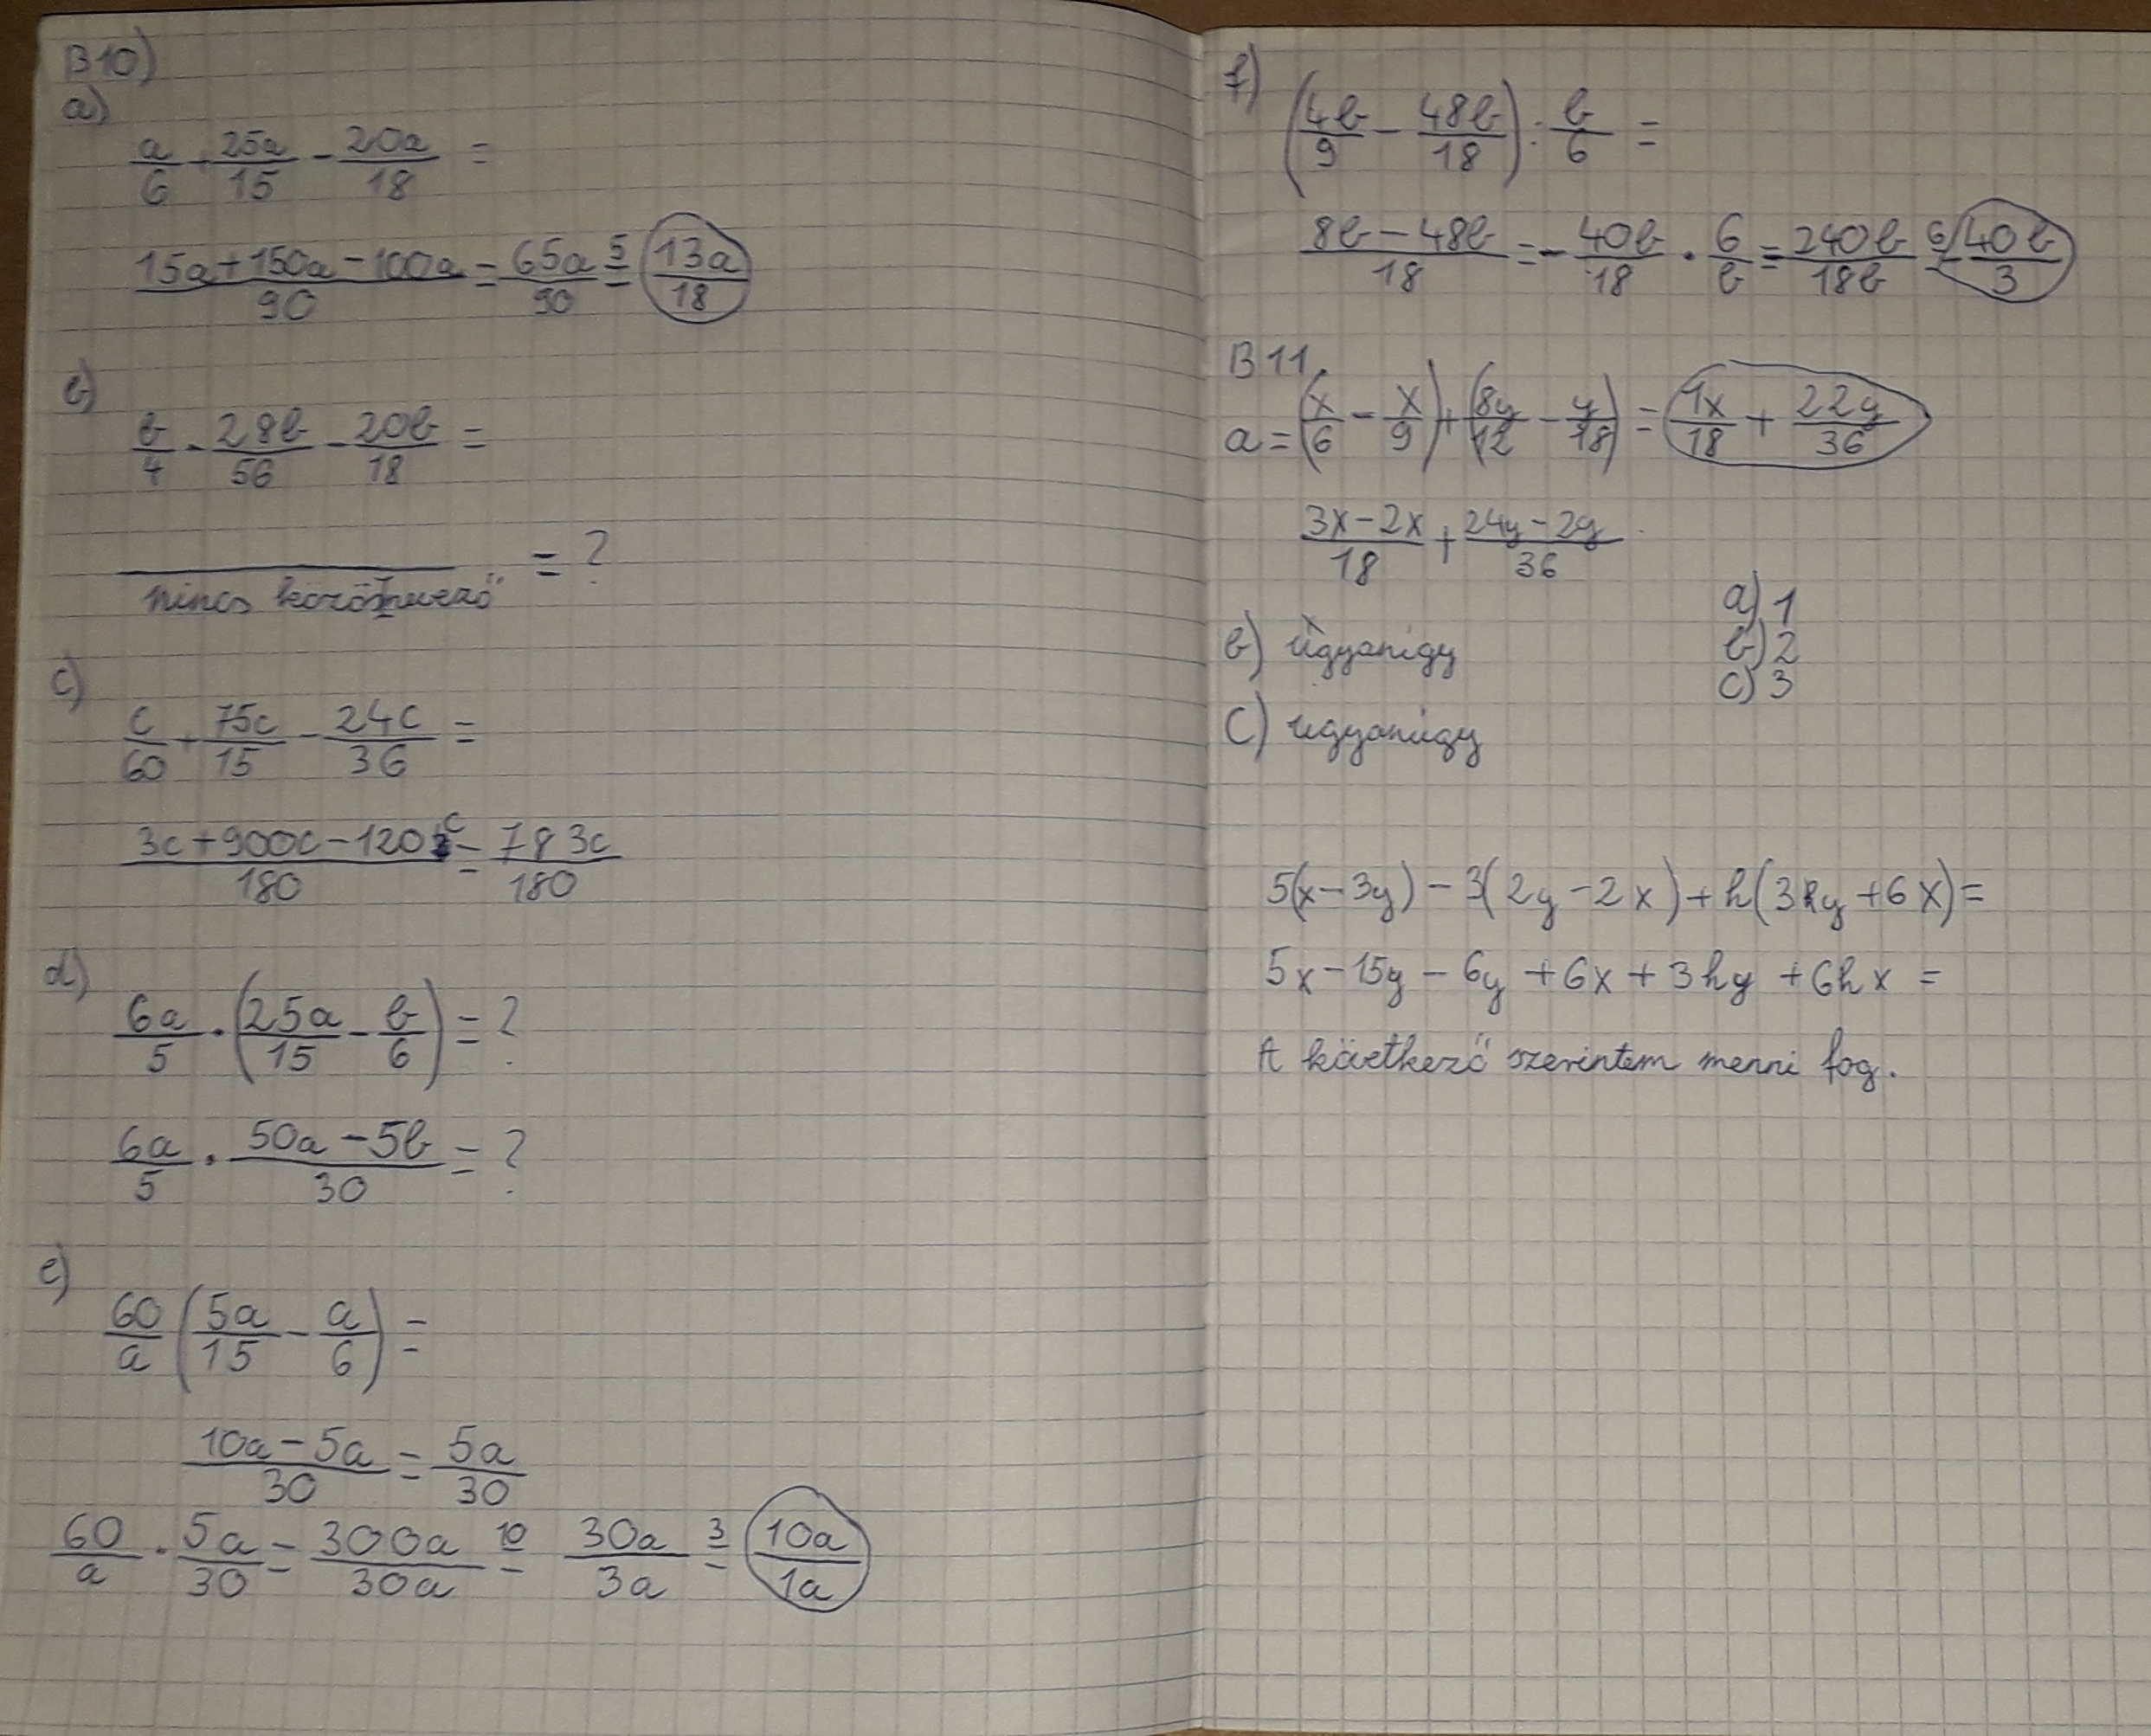 B10)
a)
a/6 + 25a/15 - 20a/18 =
15a+150a-100a/90 = 65a/90 5= 13a/18
b)
b/4 - 28b/56 - 20b/18 =
= ?
nincs közösnevező
c)
c/60 + 75c/15 - 24c/36 =
3c+900c-120c/180 = 783c/180
d)
6a/5 · (25a/15 - b/6) = ?
6a/5 · 50a-5b/30 = ?
e)
60/a (5a/15 - a/6) =
10a-5a/30 = 5a/30
60/a · 5a/30 = 300a/30a 10= 30a/3a 3= 10a/1a
f)
(4b/9 - 48b/18) : b/6 =
8b-48b/18 = -40b/18 · 6/b = -240b/18b 6= 40b/3
B11.
a = (x/6 - x/9) + (8y/12 - y/18) = 1x/18 + 22y/36
3x-2x/18 + 24y-2y/36
a) 1
b) 2
c) 3
b) ugyanígy
C) ugyanúgy
5(x-3y) - 3(2y-2x) + h(3y+6x) =
5x-15y-6y+6x+3hy+6hx =
A következő szerintem menni fog.